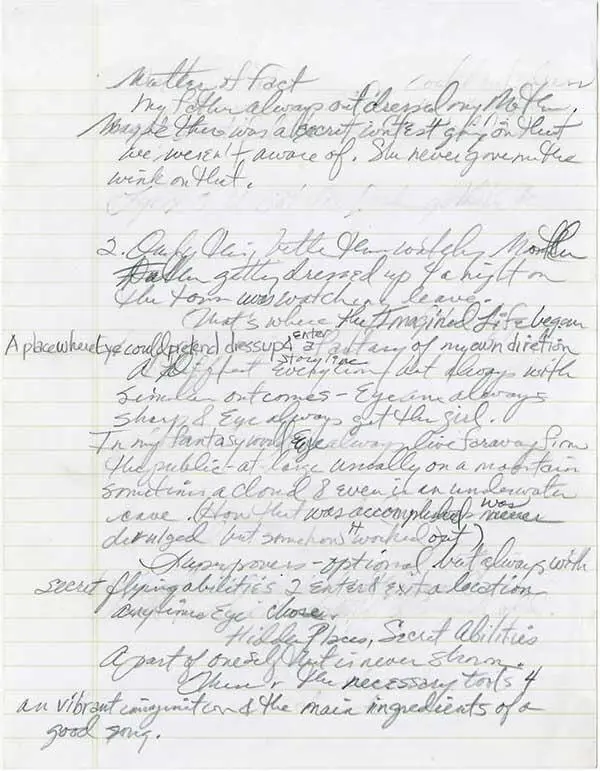 Matter of Fact
My father always outdressed my Mother.
Maybe there was a secret contest going on that
we weren't aware of. She never gave me the
wink on that.
2. Only thing better than watching Mother
Father getting dressed up 4 a night on
the town was watching leave.
That's where the Imagined Life began
A place where Eye could pretend dress up & enter a fantasy of my own direction
A different storyline everytime but always with
similar outcomes - Eye am always
sharp & Eye always get the girl.
In my fantasy world Eye always live faraway from
the public-at-large usually on a mountain
sometimes a cloud & even in an underwater
cave. (How that was accomplished was never
divulged but somehow it worked out)
Superpowers - optional but always with
secret flying abilities 2 enter & exit a location
anytime Eye chose.
Hidden Places, Secret Abilities
A part of oneself that is never shown.
These r the necessary tools 4
an vibrant imagination & the main ingredients of a
good song.